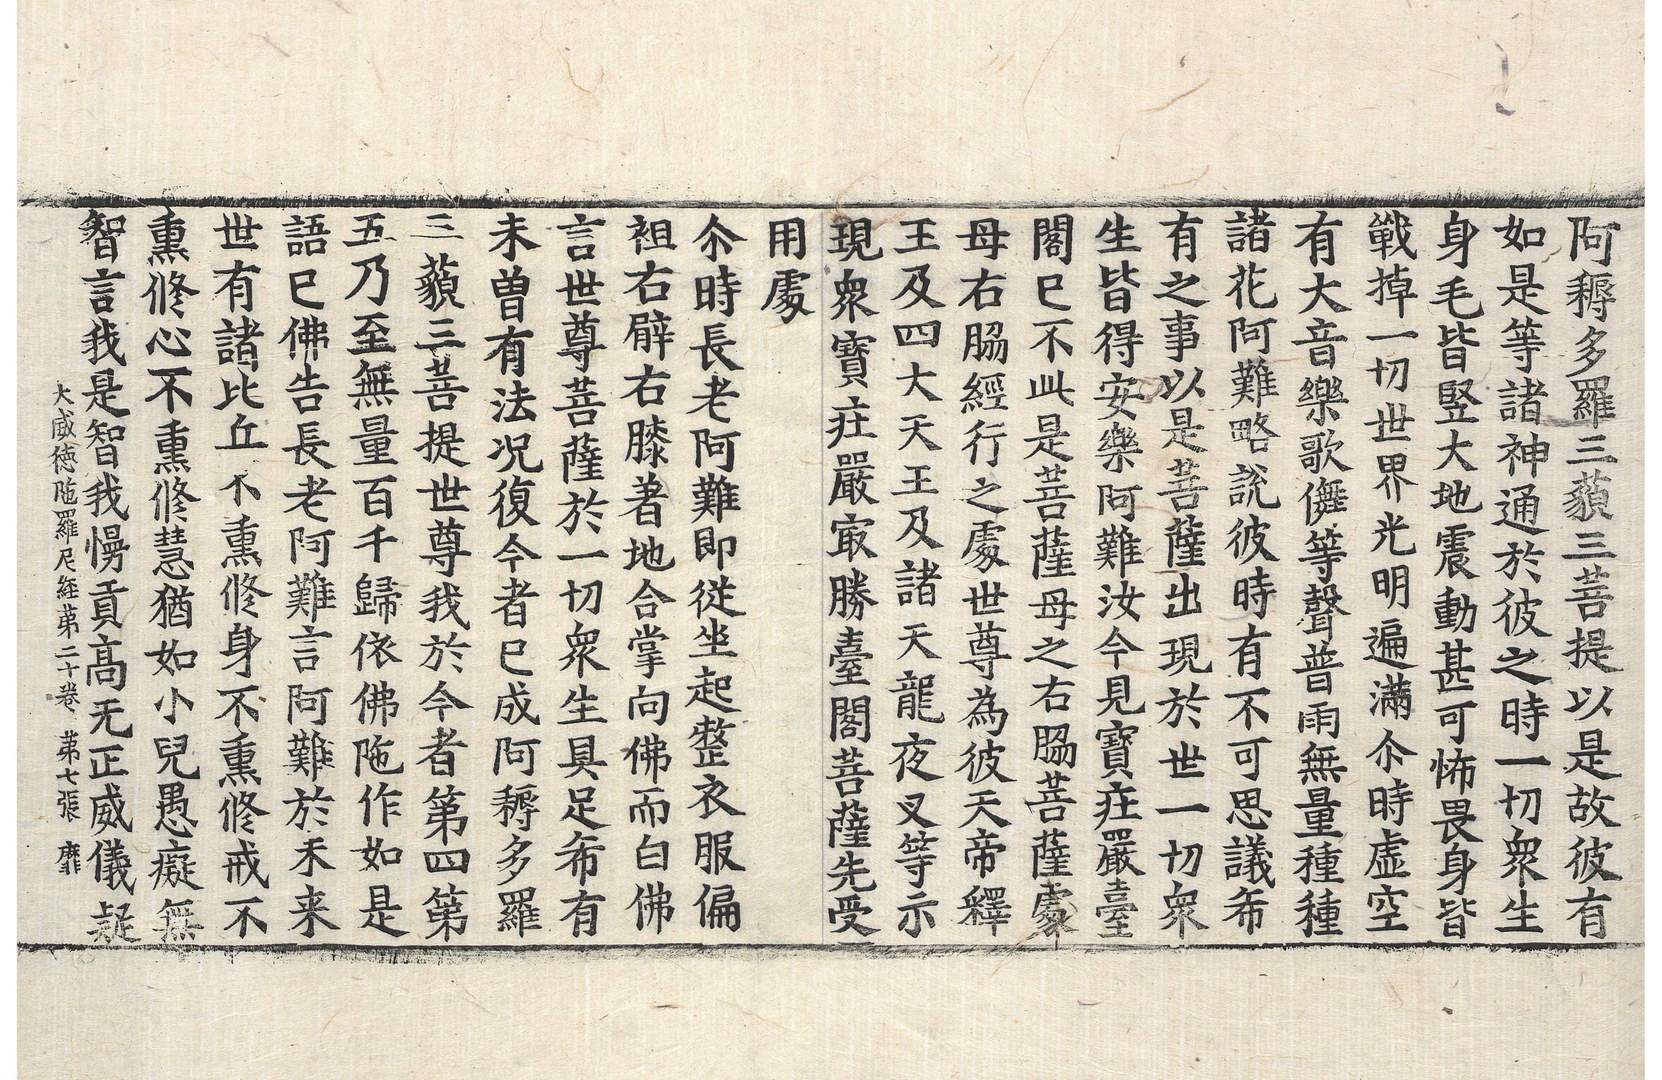 阿耨多羅三藐三菩提以是故彼有
如是等諸神通於彼之時一切衆生
身毛皆竪大地震動甚可怖畏身皆
戰掉一切世界光明遍滿尒時虛空
有大音樂歌儛等聲普雨無量種種
諸花阿難略說彼時有不可思議希
有之事以是菩薩出現於世一切衆
生皆得安樂阿難汝今見寶莊嚴臺
閣已不此是菩薩母之右脇菩薩處
母右脇經行之處世尊為彼天帝釋
王及四大天王及諸天龍夜叉等示
現衆寶莊嚴㝡勝臺閣菩薩先受
用處
尒時長老阿難即從坐起整衣服偏
袒右臂右膝著地合掌向佛而白佛
言世尊菩薩於一切衆生具足希有
未曽有法况復今者已成阿耨多羅
三藐三菩提世尊我於今者第四第
五乃至無量百千歸依佛陁作如是
語已佛告長老阿難言阿難於未来
世有諸比丘不熏修身不熏修戒不
熏修心不熏修慧猶如小兒愚癡無
智言我是智我慢貢高无正威儀疑
大威德陁羅尼經苐二十卷 苐七張 靡